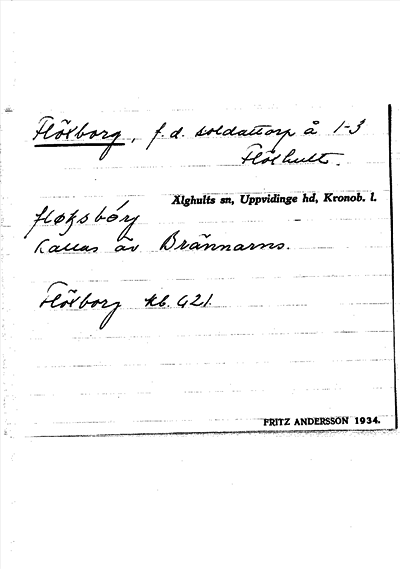 Flöxborg, f.d. soldattorp å 1-3
Flöxhult.
Älghults sn, Uppvidinge hd, Kronob. l.
fløksbórj
Kallas äv Brännarns.
Flöxborg kb. G21.
FRITZ ANDERSSON 1934.